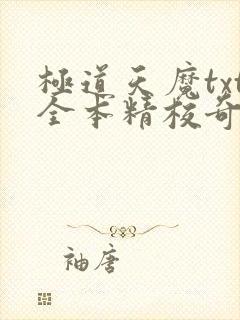 極道天魔txt
全本精校奇
袖唐